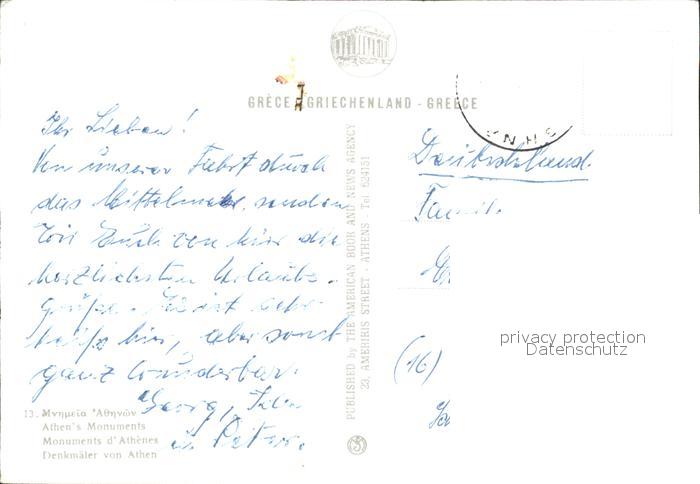 GRÈCE - GRIECHENLAND - GREECE
Ihr Lieben!
Von unserer Fahrt durch
das Mittelmeer senden
wir Euch von hier die
herzlichsten Urlaubs-
grüße. Es ist sehr
heiß hier, aber sonst
ganz wunderbar.
Georg,
u. Peter.
13. Μνημεῖα Ἀθηνῶν
Athen's Monuments
Monuments d'Athènes
Denkmäler von Athen
PUBLISHED by THE AMERICAN BOOK AND NEWS AGENCY
23, AMERIKIS STREET - ATHENS - Tel. 624151
Deutschland.
Famil.
(16)
privacy protection
Datenschutz